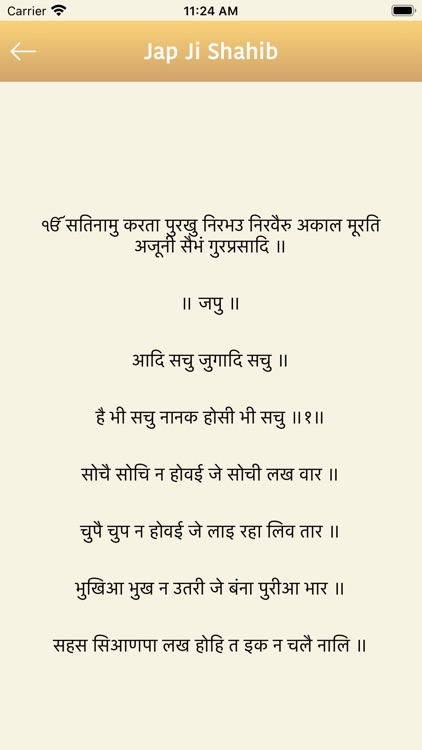 Carrier 11:24 AM
Jap Ji Shahib
ੴ सतिनामु करता पुरखु निरभउ निरवैरु अकाल मूरति
अजूनी सैभं गुरप्रसादि ॥
॥ जपु ॥
आदि सचु जुगादि सचु ॥
है भी सचु नानक होसी भी सचु ॥१॥
सोचै सोचि न होवई जे सोची लख वार ॥
चुपै चुप न होवई जे लाइ रहा लिव तार ॥
भुखिआ भुख न उतरी जे बंना पुरीआ भार ॥
सहस सिआणपा लख होहि त इक न चलै नालि ॥